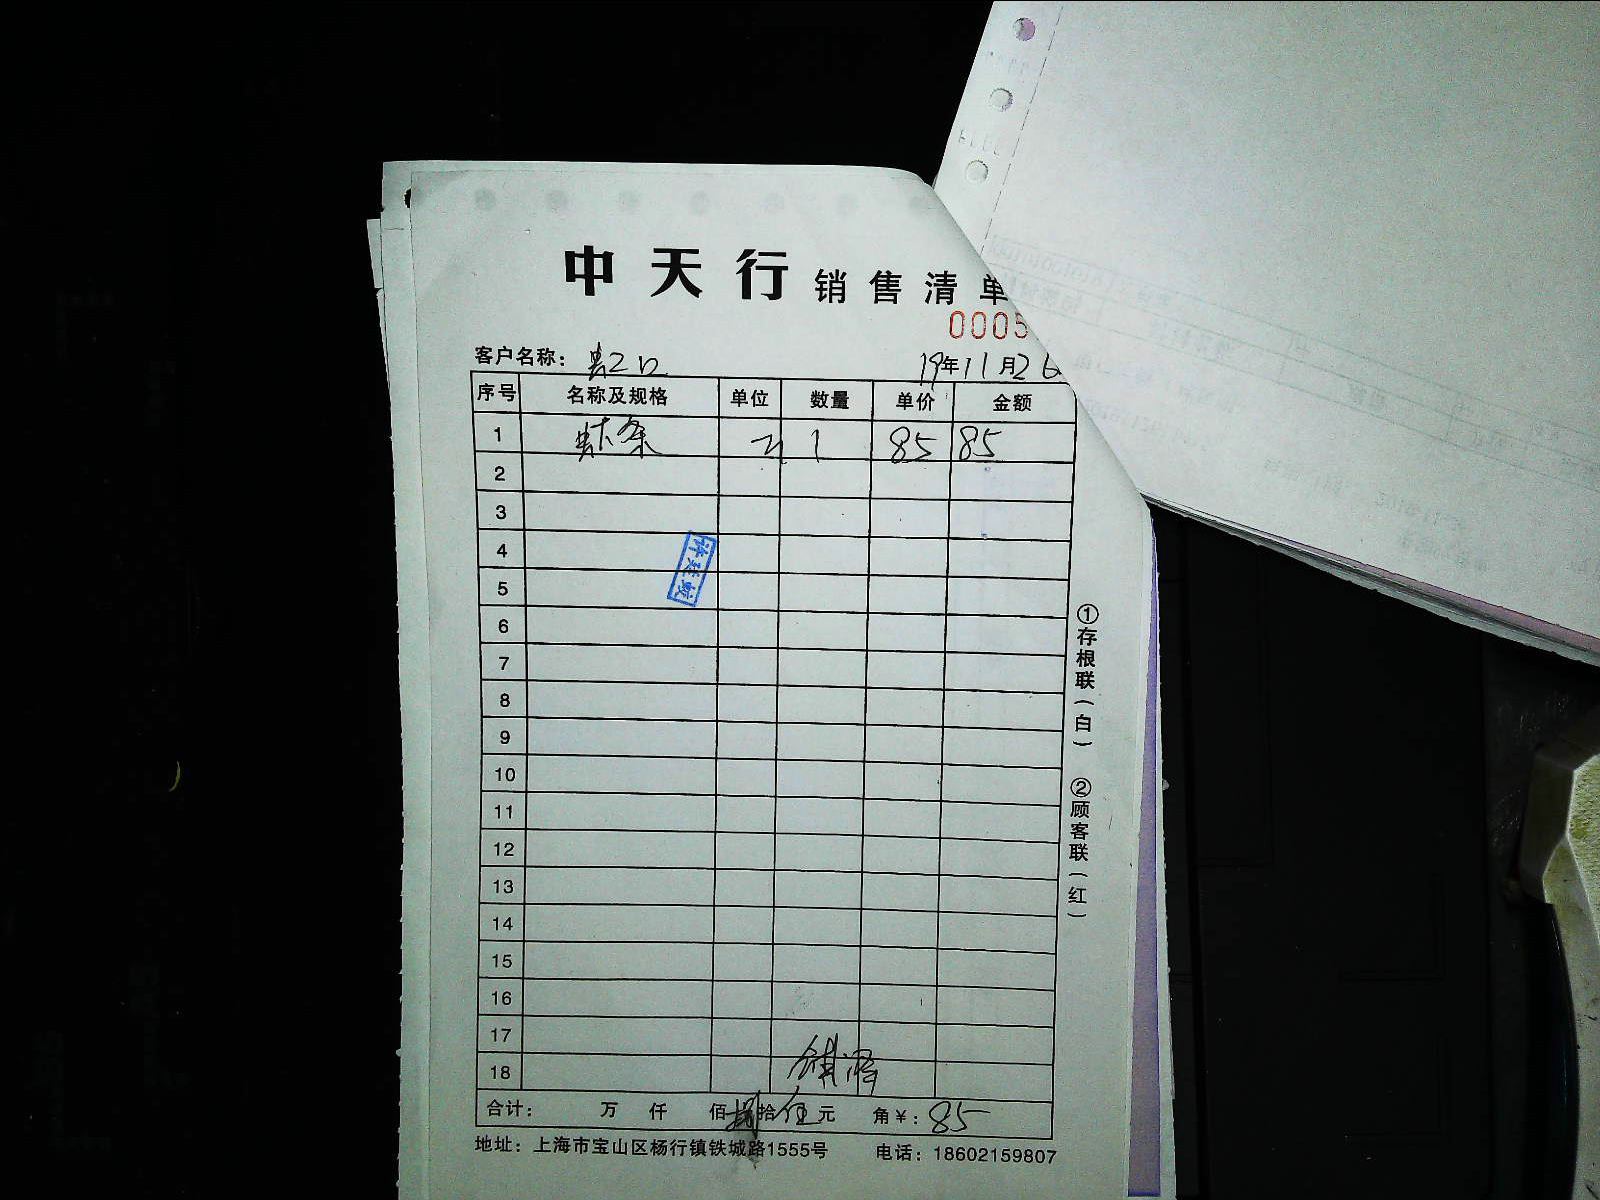 中天行 销售清单
0005
客户名称: 虹口 19年11月26
序号 名称及规格 单位 数量 单价 金额
1 1 85 85
2
3
4
5
6
7
8
9
10
11
12
13
14
15
16
17
18
合计: 万 仟 佰 捌拾伍元 角¥: 85
地址: 上海市宝山区杨行镇铁城路1555号 电话: 18602159807
①存根联(白) ②顾客联(红)